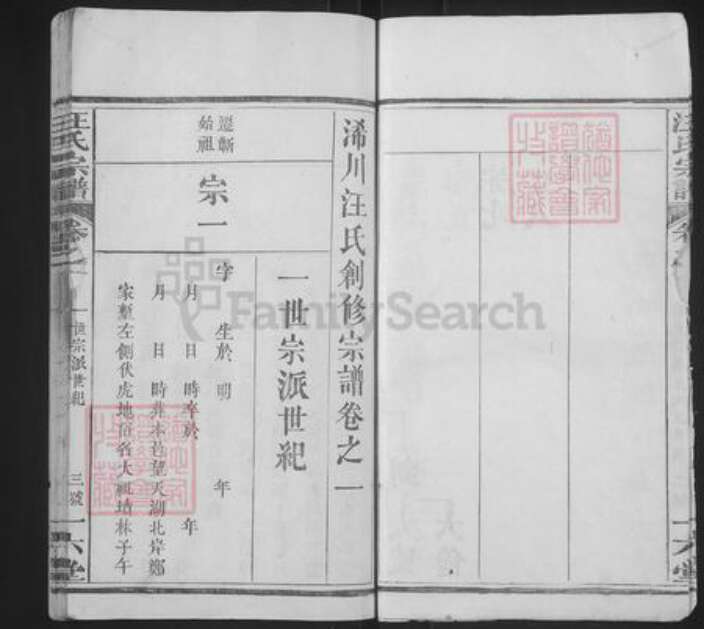 浠川汪氏創修宗譜卷之一
一世宗派世紀
遷蘄
始祖
宗一
字 生於明 年
月 日 時卒於 年
月 日 時葬本邑望天湖北岸鄭
家塹左側伏虎地俗名大祖墳林子午
汪氏宗譜
卷之一
一世宗派世紀
三號
一六堂
汪氏宗譜
卷之
一六堂
FamilySearch